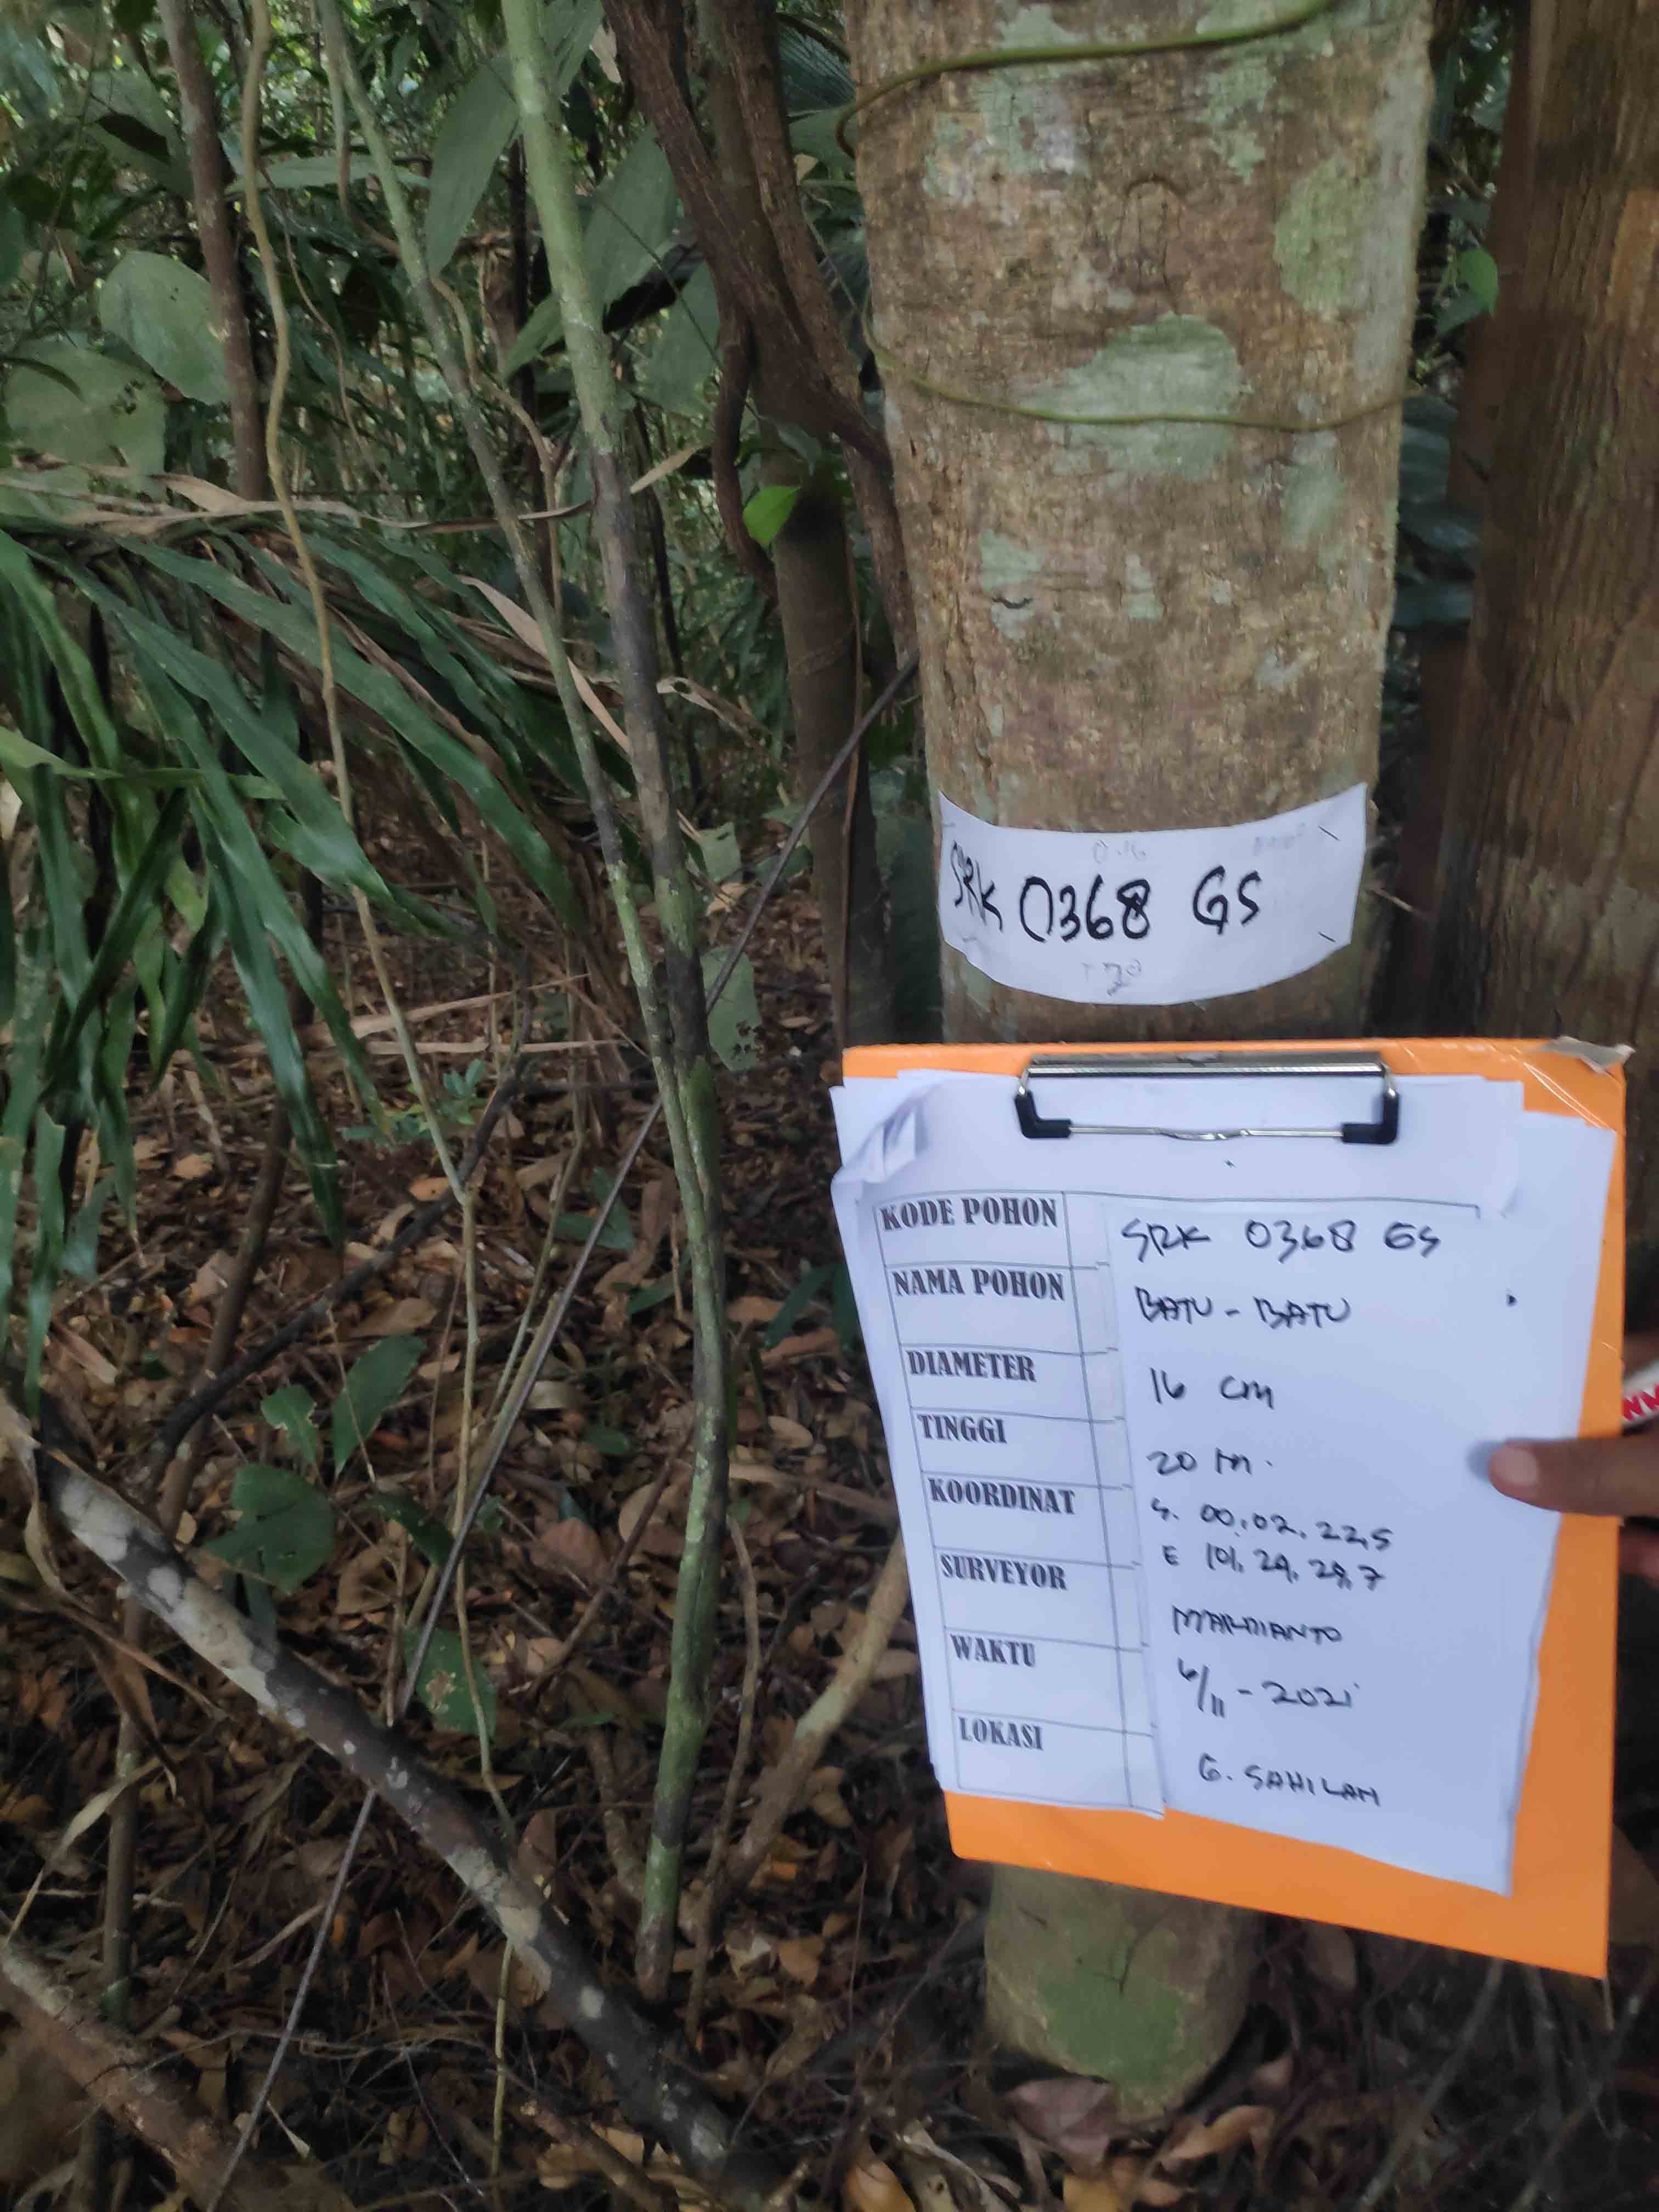 SRK 0368 GS
KODE POHON SRK 0368 GS
NAMA POHON BATU - BATU
DIAMETER 16 cm
TINGGI 20 m.
KOORDINAT S. 00, 02, 22,5
E 101, 29, 29,7
SURVEYOR MARDIANTO
WAKTU 6/11 - 2021
LOKASI G. SAHILAN